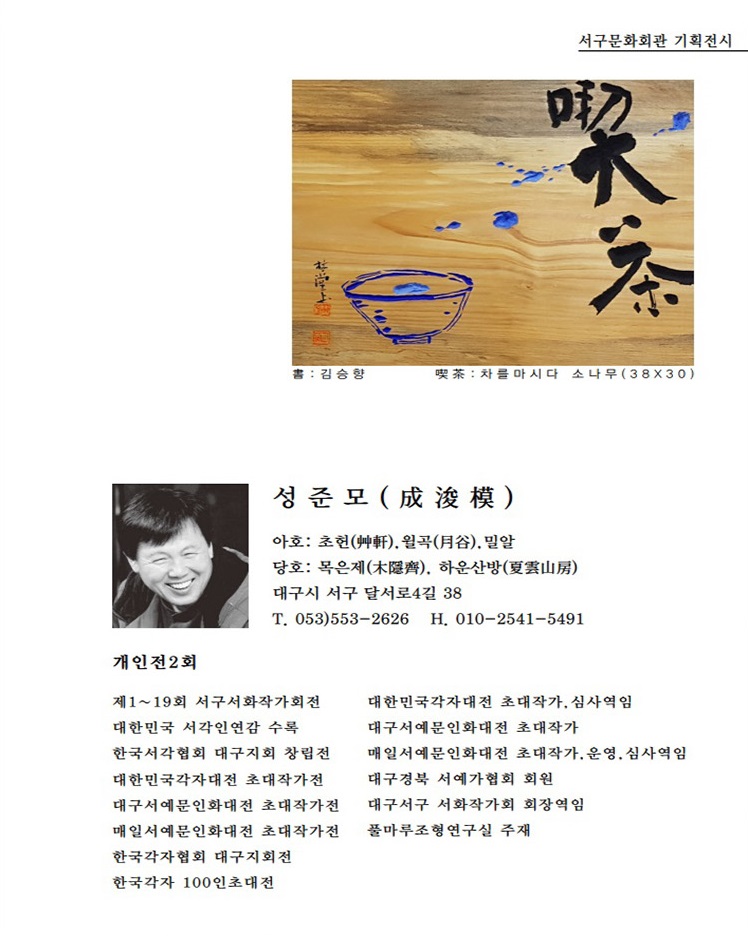 서구문화회관 기획전시
喫
茶
書 : 김승향 喫茶 : 차를마시다 소나무(38X30)
성준모(成浚模)
아호: 초헌(艸軒),월곡(月谷),밀알
당호: 목은제(木隱齊), 하운산방(夏雲山房)
대구시 서구 달서로4길 38
T. 053)553-2626 H. 010-2541-5491
개인전2회
제1~19회 서구서화작가회전
대한민국 서각인연감 수록
한국서각협회 대구지회 창립전
대한민국각자대전 초대작가전
대구서예문인화대전 초대작가전
매일서예문인화대전 초대작가전
한국각자협회 대구지회전
한국각자 100인초대전
대한민국각자대전 초대작가,심사역임
대구서예문인화대전 초대작가
매일서예문인화대전 초대작가,운영,심사역임
대구경북 서예가협회 회원
대구서구 서화작가회 회장역임
풀마루조형연구실 주재